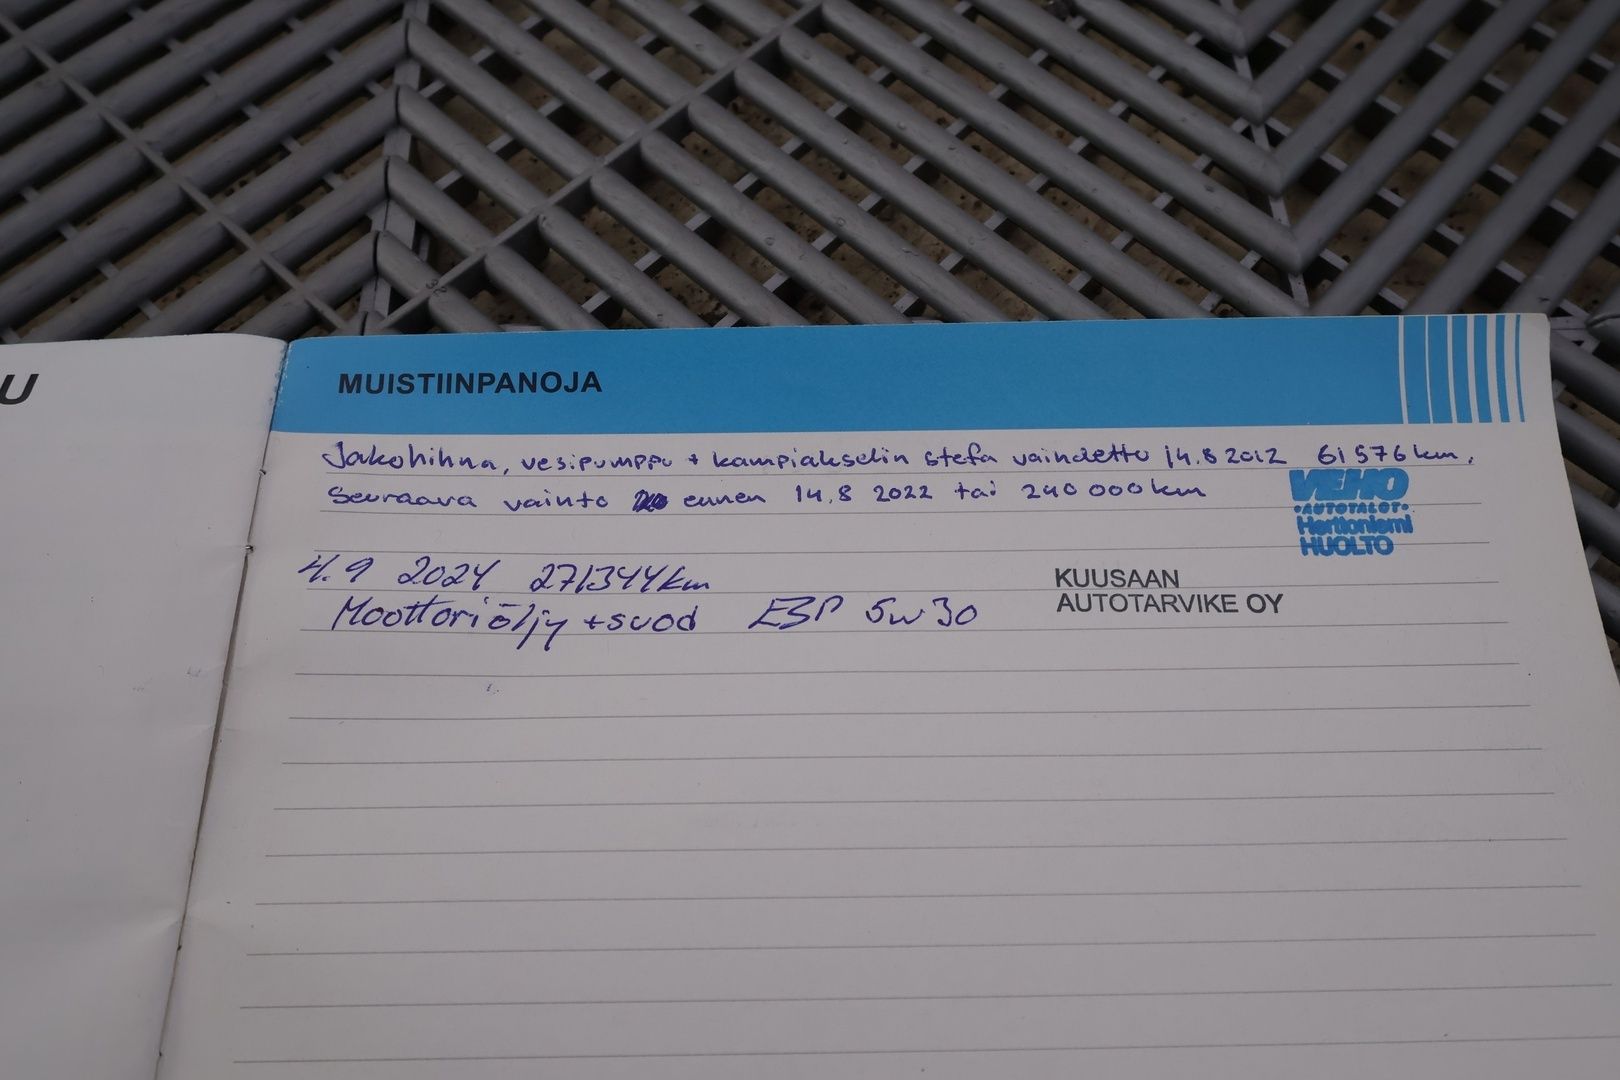 U
MUISTIINPANOJA
Jakohihna, vesipumppu + kampiakselin stefa vaihdettu 14.8 2012 61576km.
Seuraava vaihto ennen 14.8 2022 tai 240 000km
VEHO
•AUTOTALOT•
Herttoniemi
HUOLTO
4.9 2024 271344km
Moottoriöljy +suod ESP 5w30
KUUSAAN
AUTOTARVIKE OY